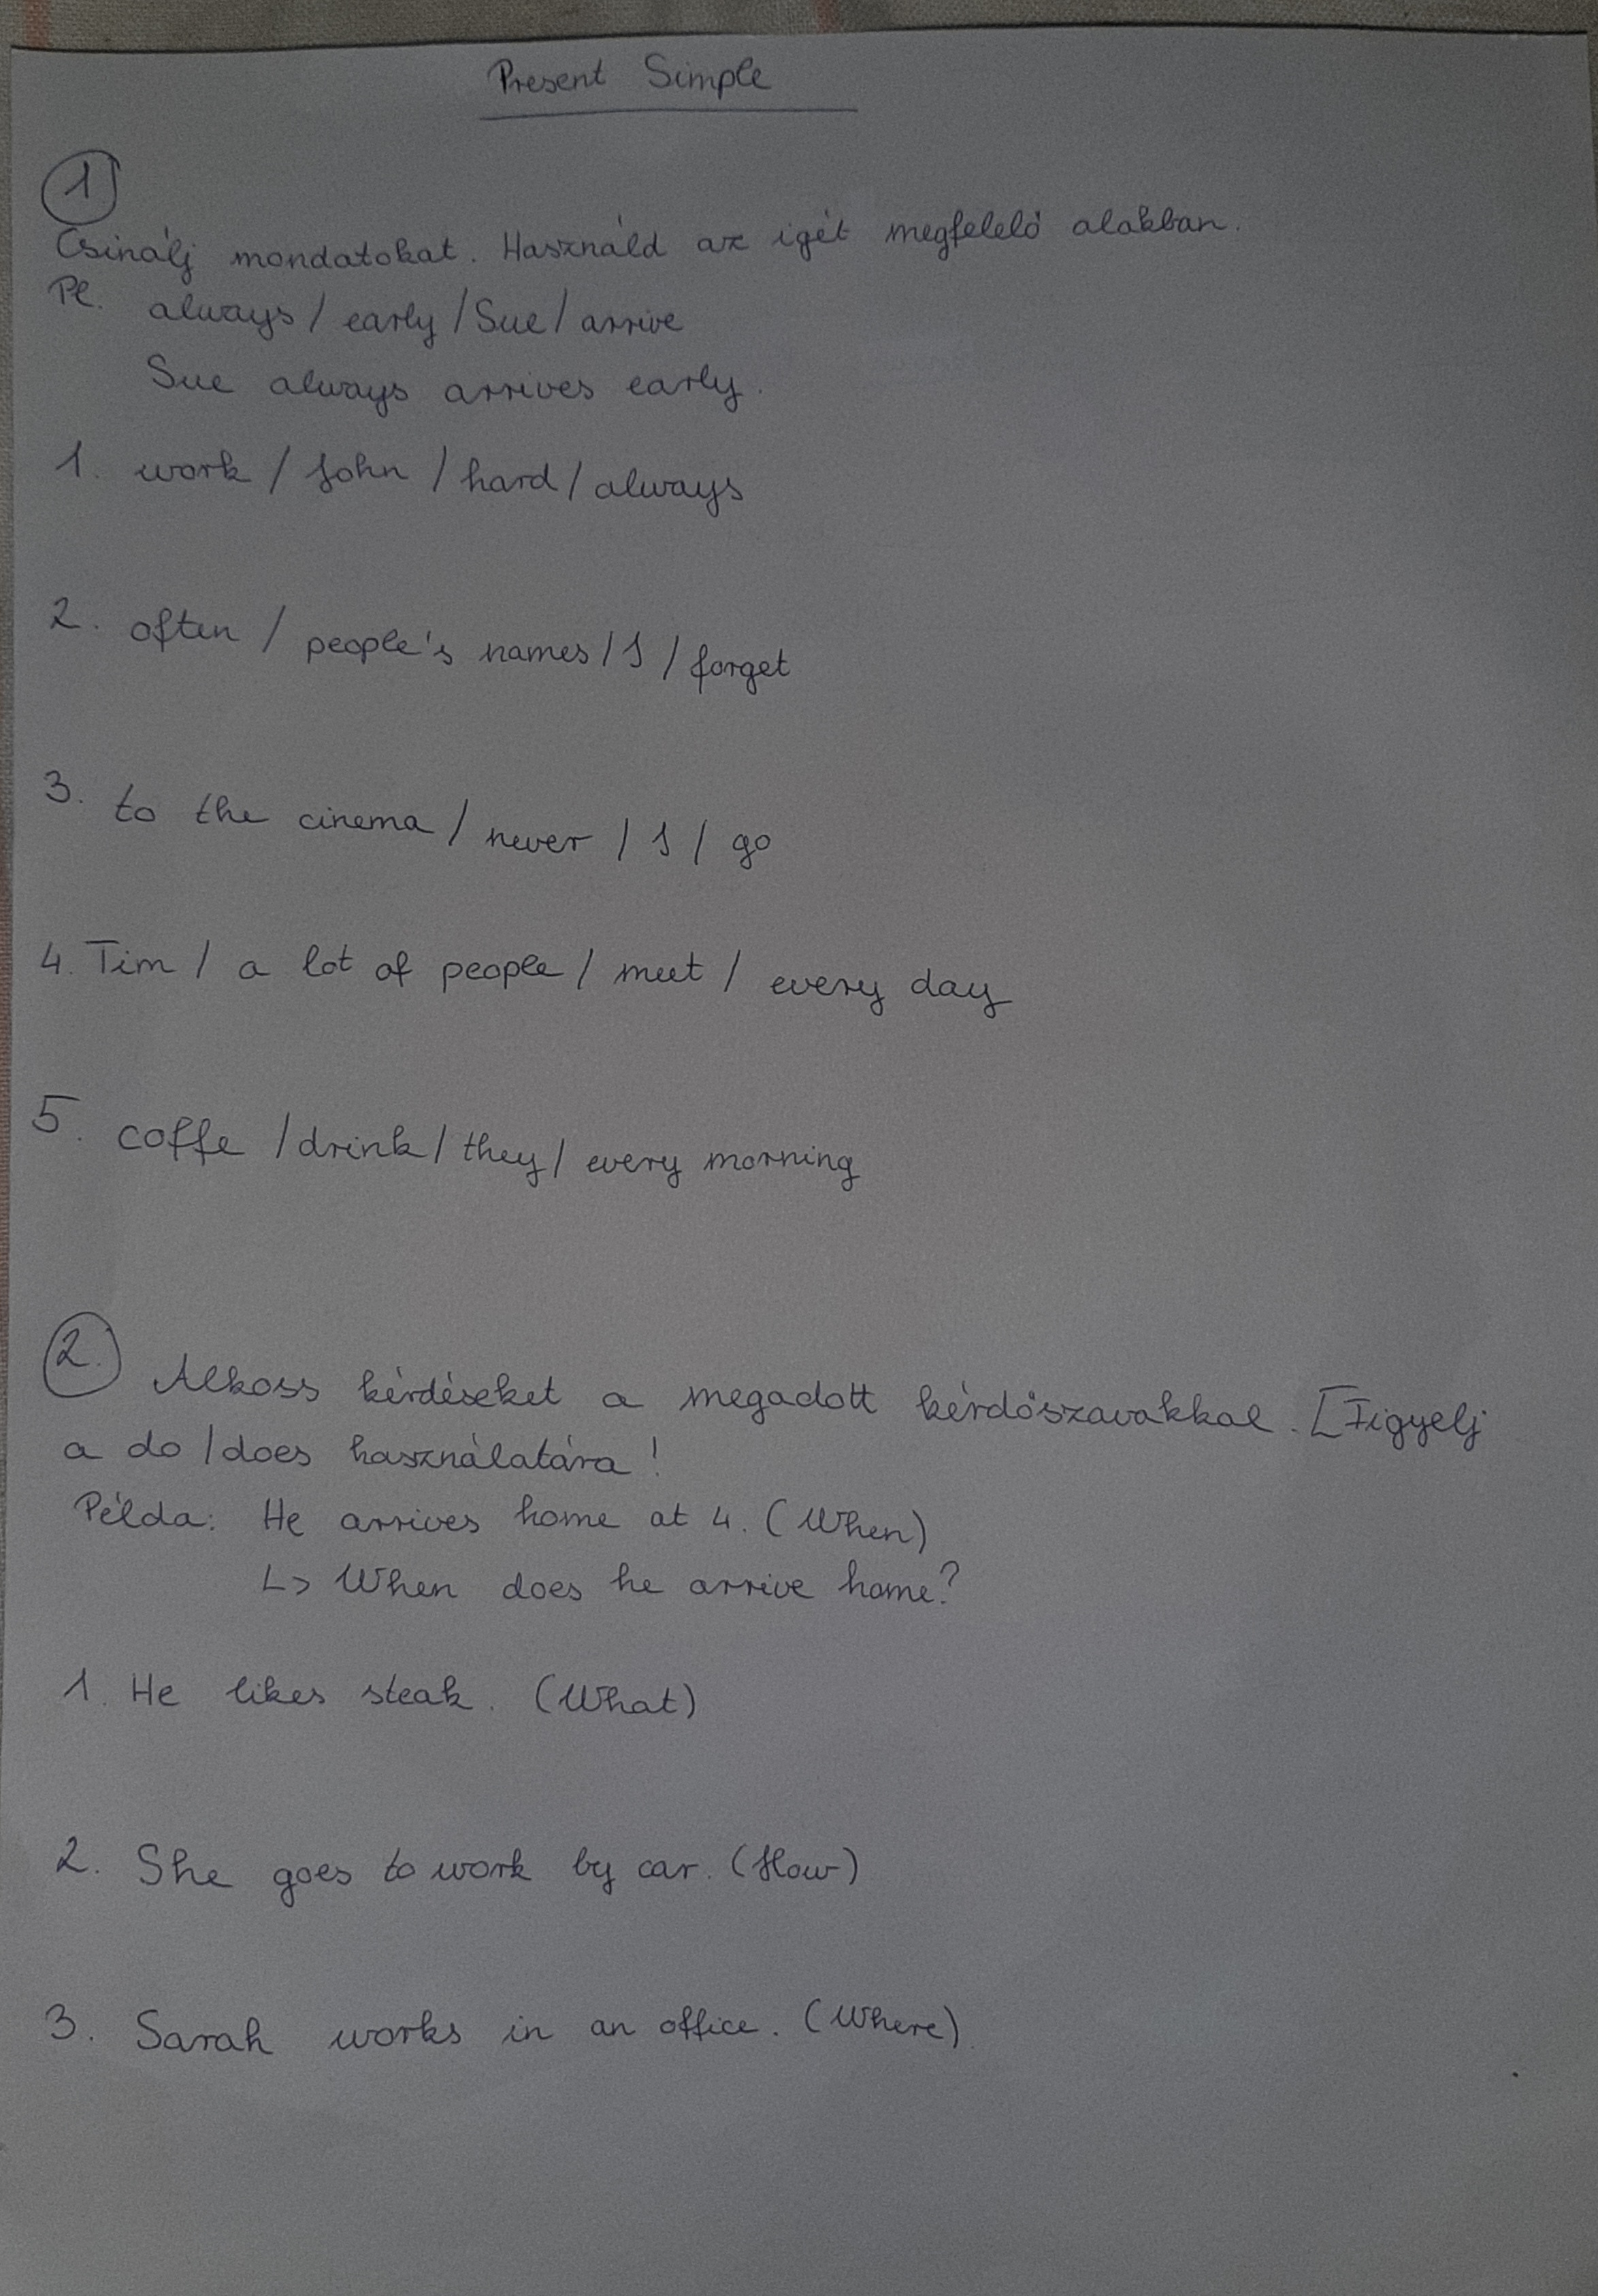 Present Simple
1
Csinálj mondatokat. Használd az igét megfelelő alakban.
Pl. always / early / Sue / arrive
Sue always arrives early.
1. work / John / hard / always
2. often / people's names / I / forget
3. to the cinema / never / I / go
4. Tim / a lot of people / meet / every day
5. coffe / drink / they / every morning
2. Alkoss kérdéseket a megadott kérdőszavakkal. [Figyelj
a do / does használatára!
Példa: He arrives home at 4. (When)
↳ When does he arrive home?
1. He likes steak. (What)
2. She goes to work by car. (How)
3. Sarah works in an office. (Where)